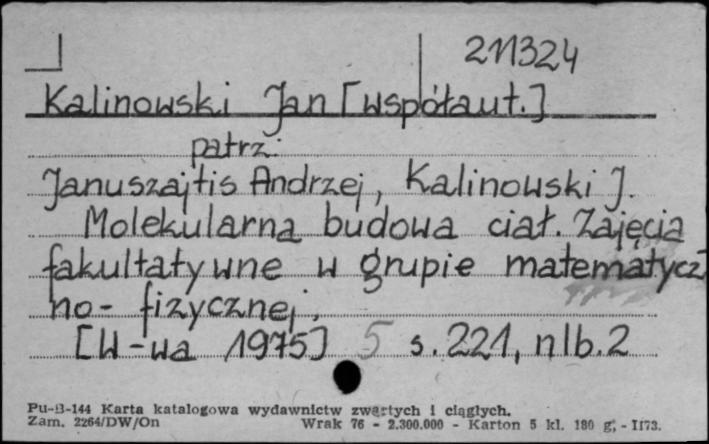 211324
Kalinowski Jan [współaut.]
patrz:
Januszajtis Andrzej, Kalinowski J.
Molekularna budowa ciał. Zajęcia
fakultatywne w grupie matematycz
no-fizycznej.
[W-wa 1975] 5 s. 221, nlb. 2
Pu-B-144 Karta katalogowa wydawnictw zwartych i ciągłych.
Zam. 2264/DW/On Wrak 76 - 2.300.000 - Karton 5 kl. 180 g. - II73.